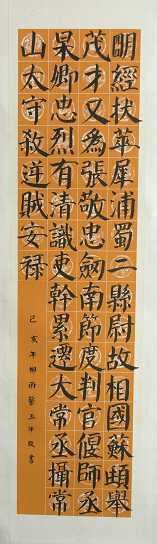 明經拔萃犀浦蜀二縣尉故相國蘇頲舉
茂才又為張敬忠劒南節度判官偃師丞
杲卿忠烈有清識吏幹累遷太常丞攝常
山太守殺逆賊安祿
己亥年柳雨馨五段書